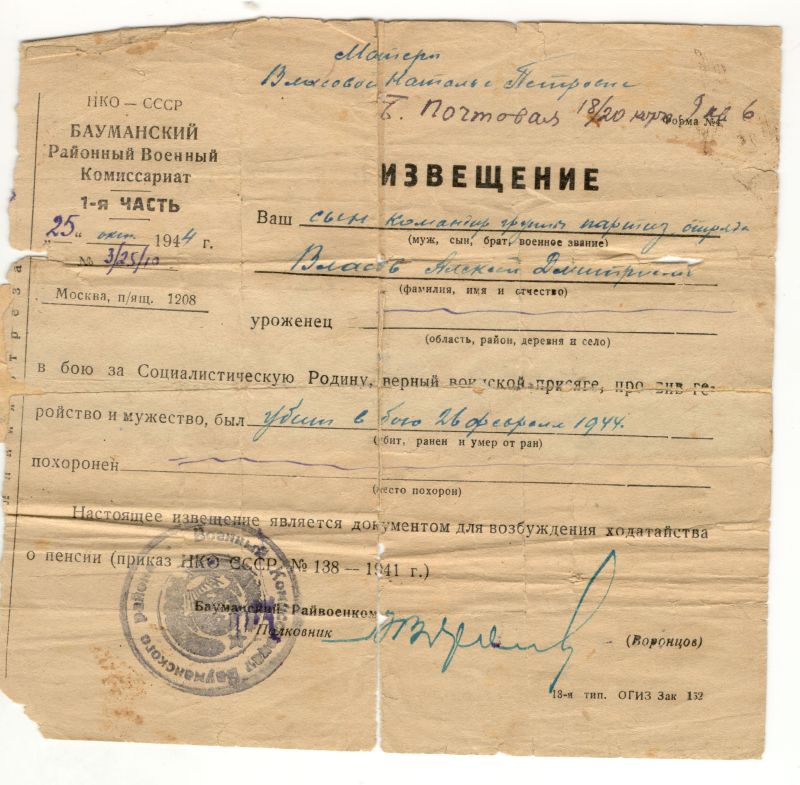 Матери
Власовой Наталье Петровне
Б. Почтовая 18/20 корп. 9 кв 6
Форма №4
НКО — СССР
БАУМАНСКИЙ
Районный Военный
Комиссариат
1-я ЧАСТЬ
„25“ окт. 1944 г.
№ 3/25/10
Москва, п/ящ. 1208
ИЗВЕЩЕНИЕ
Ваш сын командир группы партиз. отряда
(муж, сын, брат, военное звание)
Власов Алексей Дмитриевич
(фамилия, имя и отчество)
уроженец
(область, район, деревня и село)
в бою за Социалистическую Родину, верный воинской присяге, проявив ге-
ройство и мужество, был убит в бою 26 февраля 1944.
(убит, ранен и умер от ран)
похоронен
(место похорон)
Настоящее извещение является документом для возбуждения ходатайства
о пенсии (приказ НКО СССР № 138 — 1941 г.)
Бауманский Райвоенком
Полковник (Воронцов)
13-я тип. ОГИЗ Зак 152
Военный Комиссариат Бауманского район